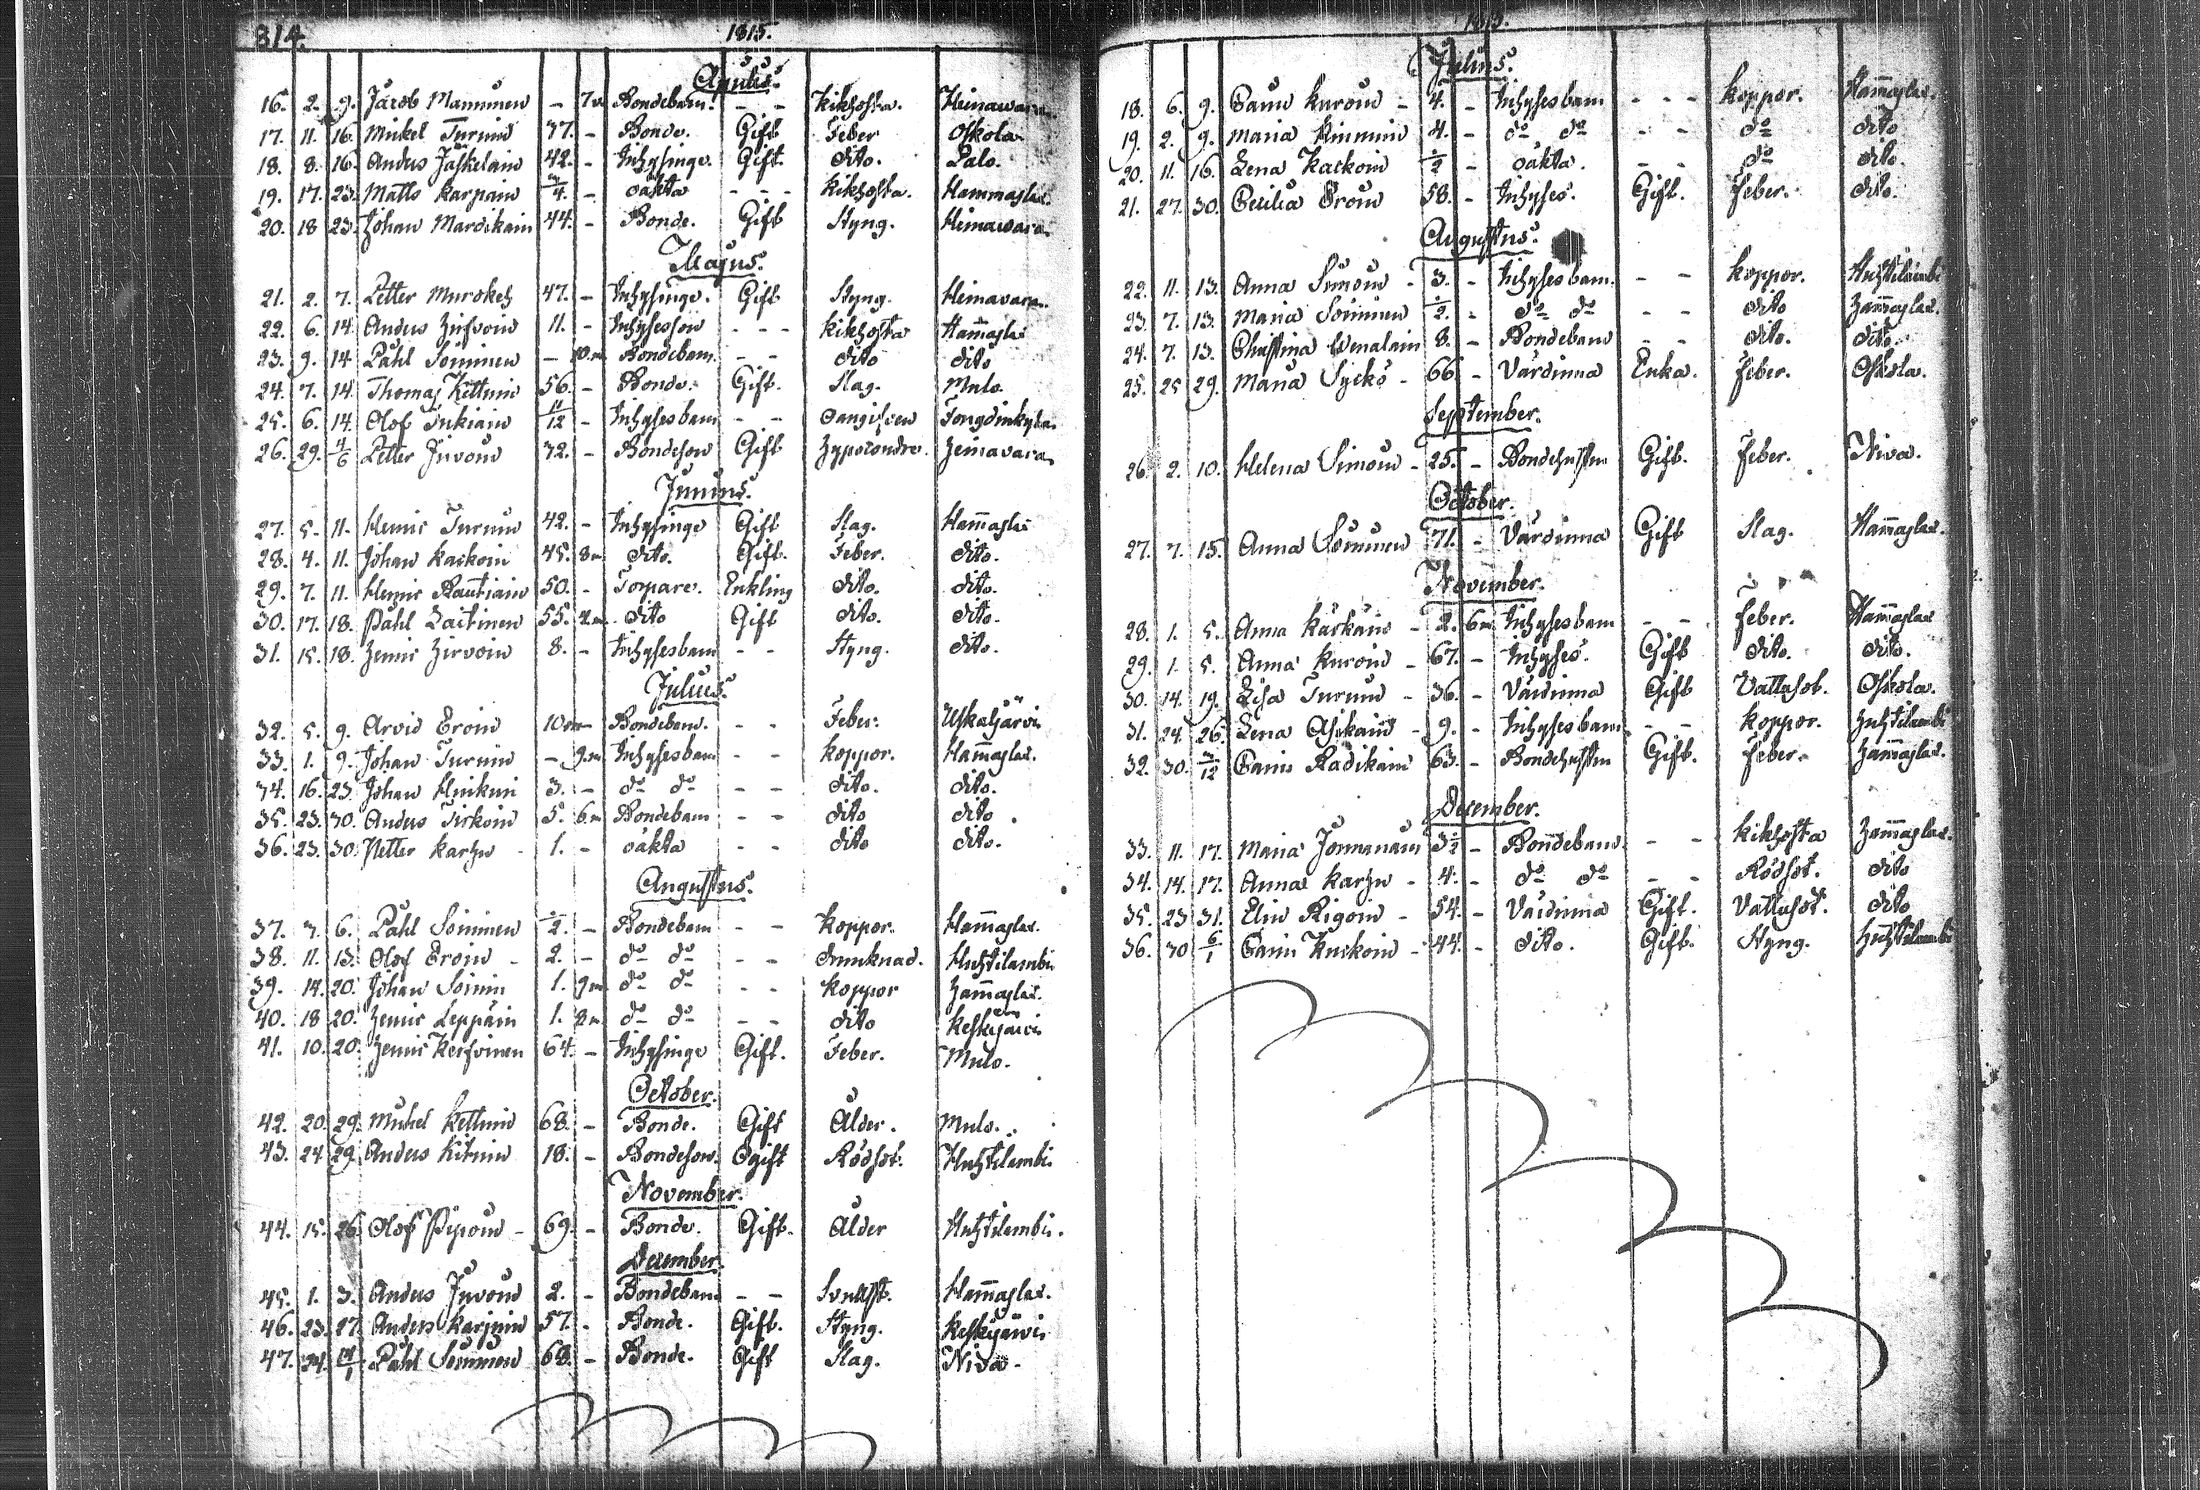 314.
1815.
Aprilis.
16. 2. 9. Jacob Manninen - 7 m Bondebarn. - - Kikhosta. Heinawara.
17. 11. 16. Mickel Turuin 37. - Bonde. Gift Feber Oskola
18. 8. 16. Anders Jäskelain 42. - Inhysinge. Gift. dito. Palo.
19. 17. 23. Matts Karpain 3/4. - dåkta - - - Kikhosta. Hammaslax.
20. 18 23. Johan Mardikain 44. - Bonde. Gift Styng. Heinawara.
Majus.
21. 2. 7. Petter Muroke 47. - Inhysinge. Gift Styng. Heinavara.
22. 6. 14. Anders Hirvoin 11. - Inhyseson - - - Kikhosta Ham̄asla
23. 9. 14 Påhl Soininen - 10.m Bondebarn. - - dito dito
24. 7. 14. Thomas Kettuin 56. - Bonde. Gift. Slag. Mulo.
25. 6. 14. Olof Tukiain 11/12 - Inhysesbarn - -
26. 29. 4/6 Petter Juvoin 32. - Bondeson Gift Heinavara
Junius.
27. 5. 11. Henric Turuin 42. - Inhysinge Gift Slag. Ham̄asla
28. 4. 11. Johan Kackoin 45. 8m dito. Gift. Feber. dito.
29. 7. 11. Henric Rautiain 50. - Torpare. Enkling dito. dito.
30. 17. 18. Påhl Laitinen 55. 2.m dito Gift dito. dito.
31. 15. 18. Henric Hirvoin 8. - Inhysesbarn - - Styng. dito.
Julius.
32. 5. 9. Arvid Eroin 10 m Bondebarn. - - Feber. Uskaljärvi
33. 1. 9. Johan Turuin - 9.m Inhysesbarn - - koppor. Ham̄aslax.
34. 16. 23. Johan Huikuri 3. - do do - - dito. dito.
35. 23. 30. Anders Tirkoin 5. 6.m Bondebarn - - dito dito
36. 23. 30. Petter Karhu - 1. - dåkta - - dito dito.
Augustus.
37. 3. 6. Påhl Soininen 1/2. - Bondebarn - - koppor. Ham̄aslax.
38. 11. 13. Olof Eroin - 2. - do do - - drunknad. Huhtilambi
39. 14. 20. Johan Soinin 1. 9m do do - - koppor Ham̄aslax.
40. 18 20. Henric Leppäin 1. 8m do do - - dito Keskijärvi
41. 10. 20. Henric Kerfvinen 64. - Inhysinge Gift. Feber. Mulo.
October.
42. 20. 29. Mickel Kettuin 68. - Bonde. Gift Ålder. Mulo.
43. 24 29. Anders Kituin 18. - Bondeson. Ogift Rödsot. Huhtilambi
November.
44. 15. 26. Olof Piipoin - 69. - Bonde. Gift. Ålder Huhtilambi.
December.
45. 1. 3. Anders Juvoin 2. - Bondebarn - - Ham̄aslax.
46. 23. 27. Anders Karjuin 57. - Bonde. Gift. Styng. Keskijärvi
47. 24. 14/1 Påhl Soininen 68. - Bonde. Gift Slag. Niva.
1815.
Julius.
18. 6. 9. Carin Kuroin - 4. - Inhysesbarn - - - koppor. Ham̄aslax.
19. 2. 9. Maria Kinnuin 4. - do do - - do dito
20. 11. 16. Lena Kackoin 1/2 - dåkta. - - do dito.
21. 27. 30. Cecilia Eroin 58. - Inhyses. Gift. Feber. dito.
Augustus.
22. 11. 13. Anna Simoin - 3. - Inhysesbarn. - - koppor. Huhtilambi
23. 7. 13. Maria Soininen 1/2. - do do - - dito Ham̄aslax.
24. 7. 13. Christina Wenalain 8. - Bondebarn - - dito. dito.
25. 25 29. Maria Sycko - 66 - Värdinna Enka. Feber. Oskola.
September.
26. 2. 10. Helena Simoin - 25. - Bondehustru Gift. Feber. Niva.
October.
27. 7. 15. Anna Soininen 71. - Värdinna Gift Slag. Ham̄aslax.
November.
28. 1. 5. Anna Kärkäin - 2. 6m Inhysesbarn - - Feber. Ham̄aslax
29. 1. 5. Anna Kuroin - 67. - Inhyses. Gift dito. dito.
30. 14. 19. Lisa Turuin - 36. - Värdinna Gift Vattusot. Oskola.
31. 24. 26. Lena Asikain - 9. - Inhysesbarn - - koppor. Huhtilambi
32. 30. 3/12 Carin Radikain 63. - Bondehustru Gift. Feber. Ham̄aslax.
December.
33. 11. 17. Maria Jormanain 3 1/2 - Bondebarn. - - kikhosta Ham̄aslax.
34. 14. 17. Anna Karhu - 4. - do do - - Rödsot. dito
35. 23 31. Elin Rigoin - 54. - Värdinna Gift. Vattusot. dito
36. 30 6/1 Carin Kuckoin - 44. - dito. Gift. Styng. Huhtilambi